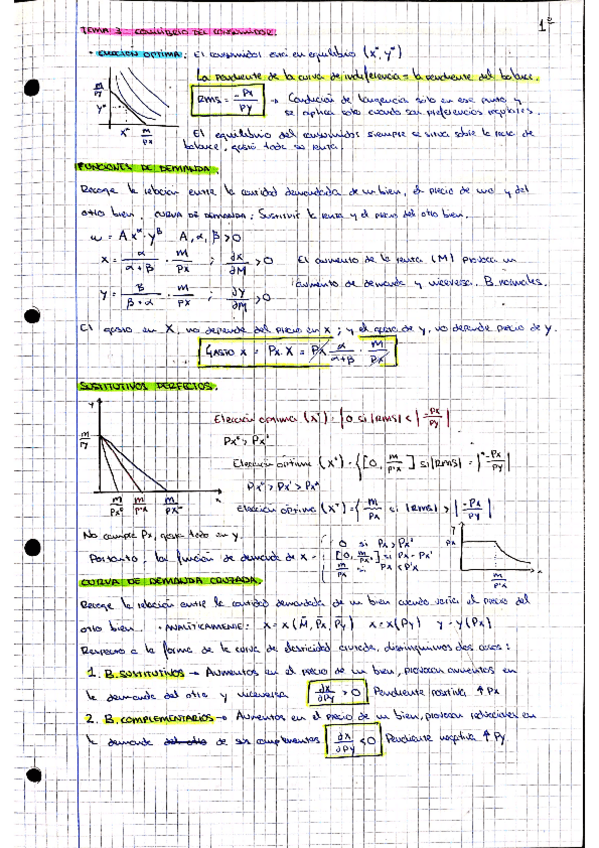 TEMA 3 - EQUILIBRIO DEL CONSUMIDOR. 1º
· ELECCIÓN OPTIMA: El consumidor está en equilibrio (x*, y*)
La Pendiente de la curva de indiferencia = la pendiente del balance.
RMS = -Px/Py → Condición de tangencia solo en ese punto y
se aplica solo cuando son preferencias regulares.
m/Py Y* X* m/Px
El equilibrio del consumidor siempre se sitúa sobre la recta de
balance, gasta toda su renta.
FUNCIONES DE DEMANDA.
Recoge la relación entre la cantidad demandada de un bien, el precio de uno y del
otro bien. CURVA DE DEMANDA: Sustituir la renta y el precio del otro bien.
u = A x^α y^β A, α, β > 0
x = α/(α+β) · m/Px ; ∂x/∂M > 0 El aumento de la renta (M) provoca un
aumento de demanda y viceversa. B. normales.
y = β/(β+α) · m/Px ; ∂y/∂M > 0
El gasto en X, no depende del precio en x; y el gasto de y, no depende precio de y.
GASTO X = Px · X = Px α/(α+β) · M/Px
SUSTITUTIVOS PERFECTOS.
Elección optima (x*) = {0 si |RMS| < |-Px/Py|
Elección óptima (x*) = {[0, m/P'x] si |RMS| = |-Px/Py|
Elección optima (x*) = {m/Px si |RMS| > |-Px/Py|
No compra Px, gasta todo en y.
Portanto, la función de demanda de x =
0 si Px > Px'
CURVA DE DEMANDA CRUZADA.
Recoge la relación entre la cantidad demandada de un bien cuando varía el precio del
otro bien. · ANALÍTICAMENTE: x = x(M, Px, Py) x = x(Py) y = y(Px)
Respecto a la forma de la curva de elasticidad cruzada, distinguimos dos casos:
1. B. SUSTITUTIVOS → Aumentos en el precio de un bien, provocan aumentos en
la demanda del otro y viceversa ∂x/∂Py > 0 Pendiente positiva ↑ Px
2. B. COMPLEMENTARIOS → Aumentos en el precio de un bien, provocan reducciones en
la demanda del otro de sus complementos ∂x/∂Py < 0 Pendiente negativa ↑ Py